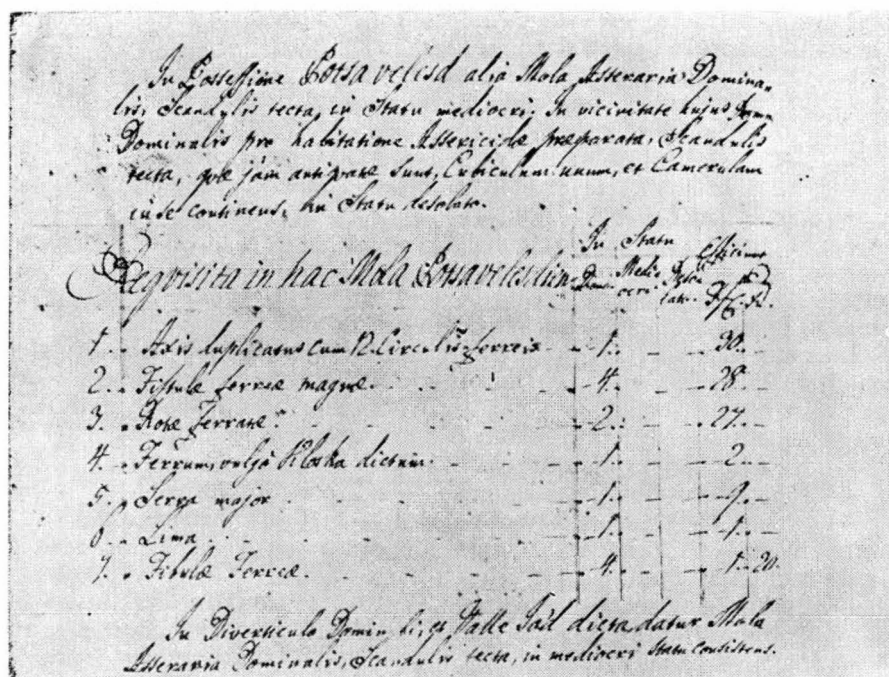 In Possessione Potsa velesd alia Mola Asseraria Domina-
lis, Scandulis tecta, in Statu mediocri. In vicinitate hujus
Dominalis pro habitatione Assericidæ præparata, Scandulis
tecta, quæ jám antiquatæ sunt, Cubiculum unum, et Camerulam
in se continens, in Statu desolato.
In Statu efficiunt
Requisita in hac Mola Potsavelesdien: Bono Medio
ocri Desola
tato f. x. d.
1. Axis duplicatus cum 12. Circulis ferreis 1. 30.
2. Fistulæ ferreæ magnæ 4. 28.
3. Rotæ ferratæ 2. 27.
4. Ferrum, vulgò Kloska dictum 1. 2.
5. Serra major 1. 9.
6. Lima 1. 1.
7. Fibulæ Ferreæ. 4. 1. 20.
In Diverticulo Dominali, et Valle Jád dicta datur Mola
Asseraria Dominalis, Scandulis tecta, in mediocri statu consistens.